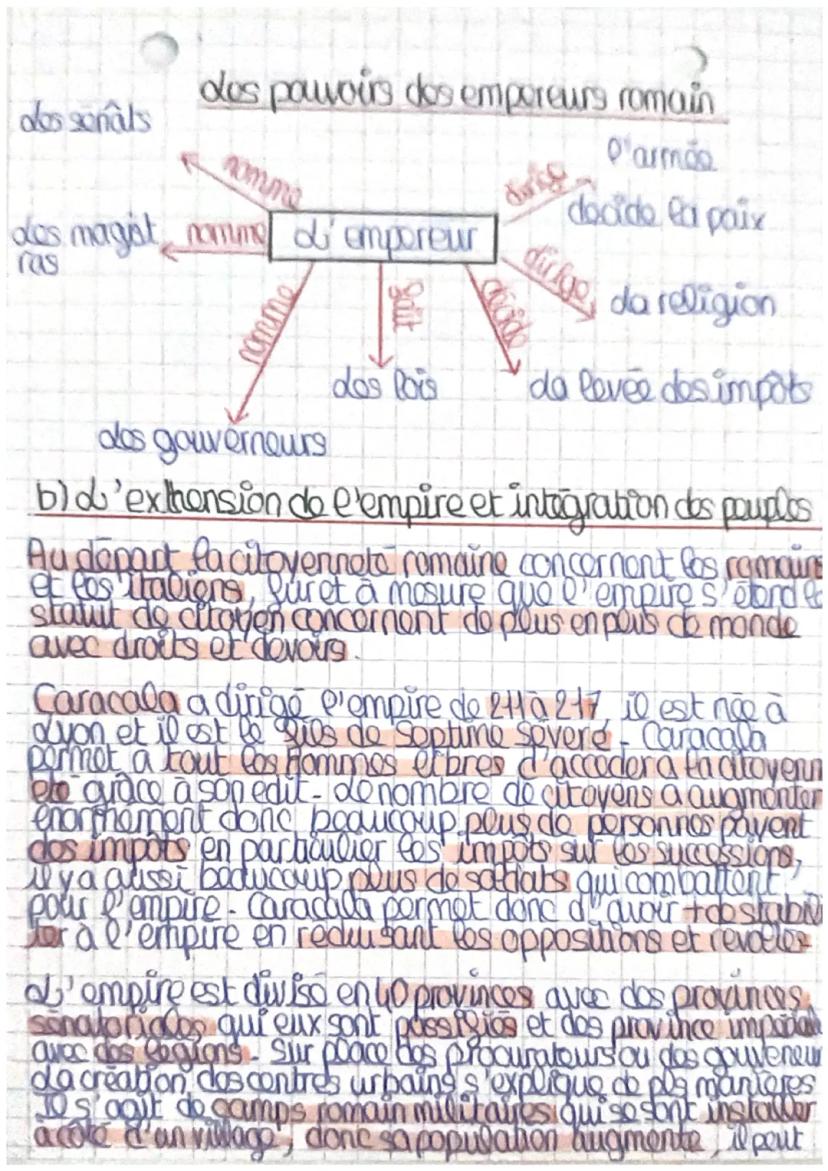 Les pouvoirs des empereurs romain
des sénâts
l'armée
nomme
dirige
décide la paix
des magist
ras
nomme
L'empereur
dirige
La religion
nomme
fait
décide
des lois
La levée des impôts
des gouverneurs
b) L'exthension de l'empire et intégration des peuples
Au départ la citoyenneté romaine concernent les romains
et les italiens, fur et à mesure que l'empire s'étend le
statut de citoyen concernent de plus en plus de monde
avec droits et devoirs.
Caracala a dirigé l'empire de 211 à 217, il est née à
Lyon et il est le fils de Septime Severe. Caracala
permet à tout les hommes libres d'acceder a la citoyenn
eté grâce à son edit. Le nombre de citoyens a augmenter
énormément donc beaucoup plus de personnes payent
des impôts en particulier les impôts sur les successions,
il y a aussi beaucoup plus de soldats qui combattent
pour l'empire. Caracala permet donc d'avoir + de stabili
ter à l'empire en reduisant les oppositions et revolte.
L'empire est divisé en 40 provinces avec des provinces
sénatoriales qui eux sont possifiés et des province impérial
avec des légions. Sur place des procurateurs ou des gouveneur
La création des centres urbains s'explique de pls manières
Il s'agit de camps romain militaires qui se sont installer
a côté d'un village, donc sa population augmente, il peut